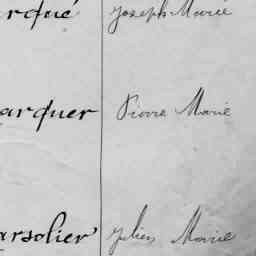 arqué Joseph Marie
arquer Pierre Marie
arsolier Julien Marie